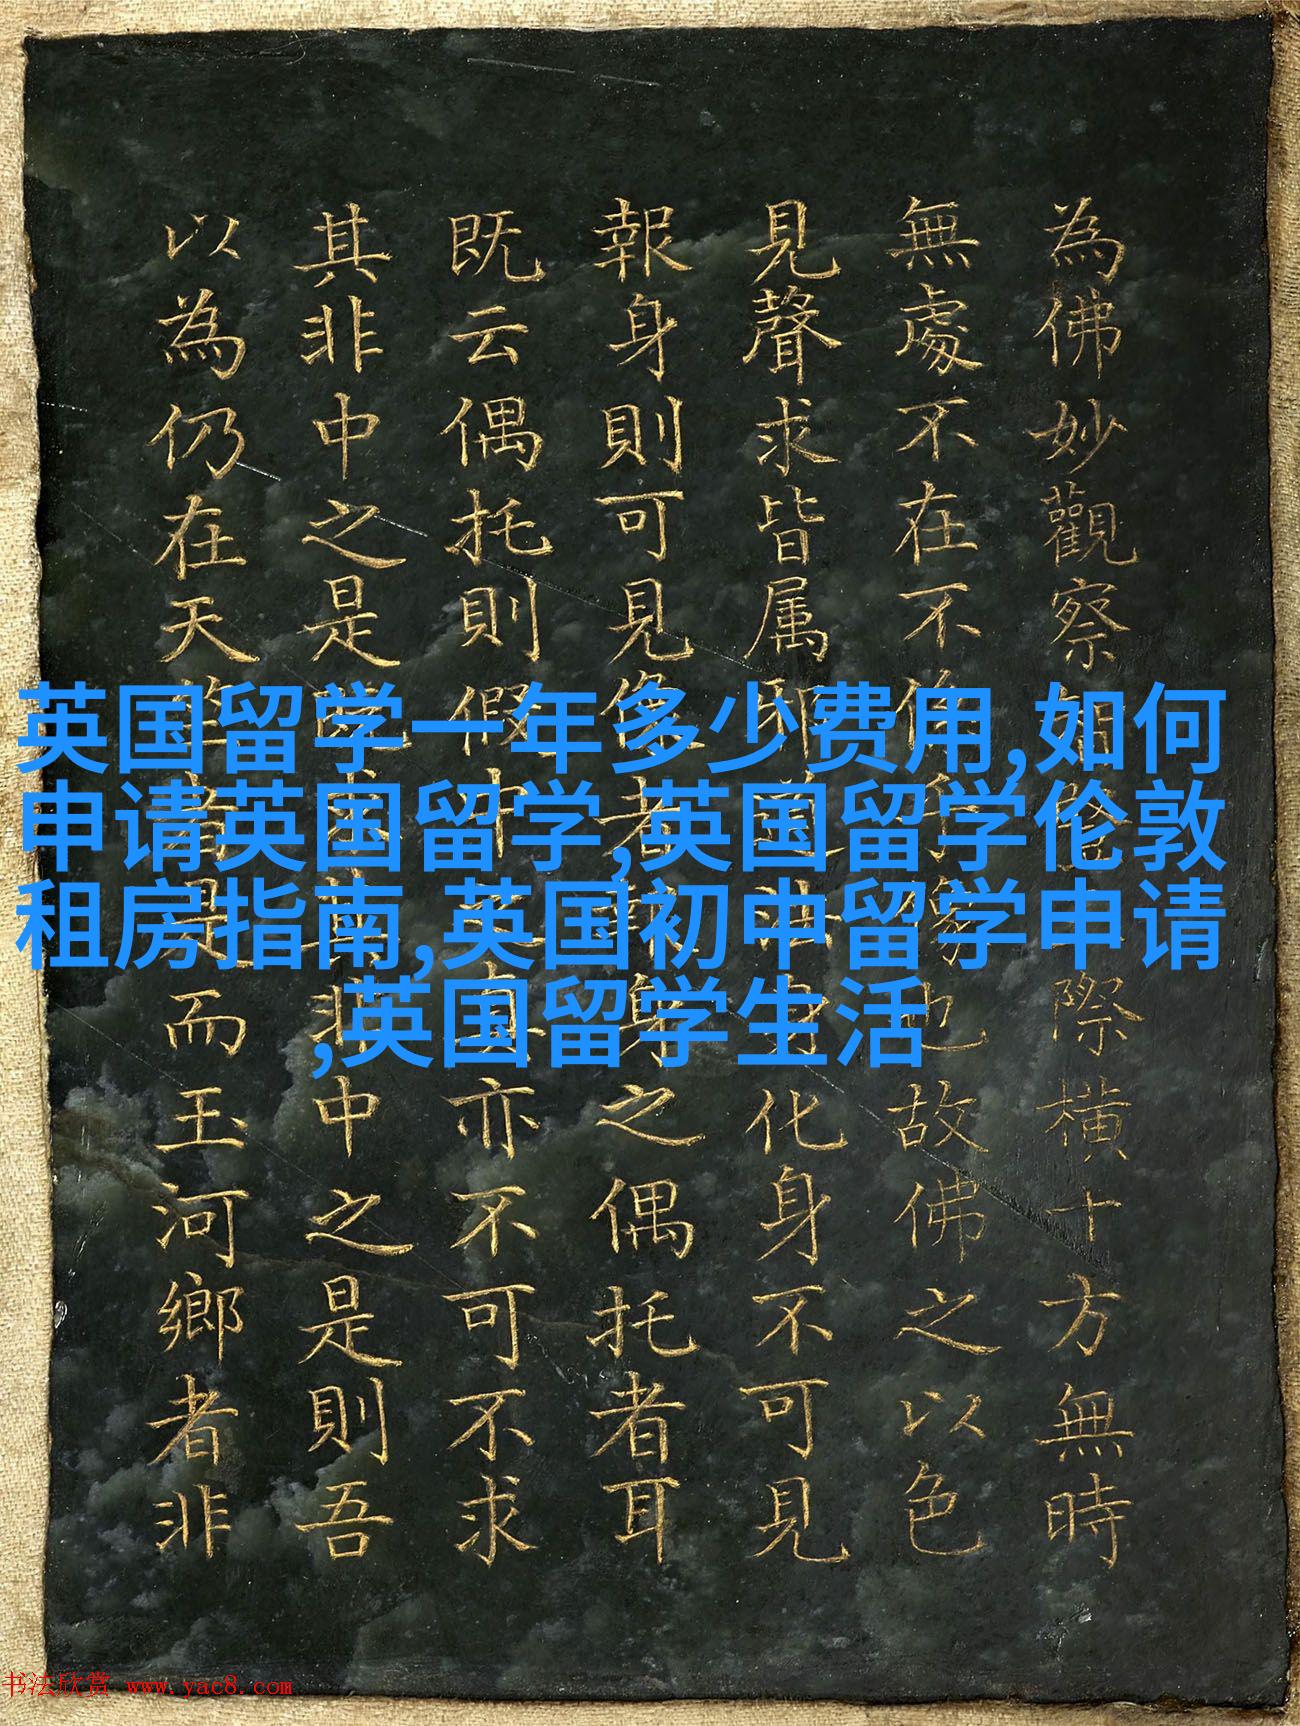 為佛妙觀察際橫十方無時
無處不在不也故佛之以色
見聲求皆属化身不可見
報身則可見者身之偶托者耳
既云偶托則假中真亦不可不求
其非中之是非中之是則吾
以為仍在天者是而玉河鄉者非
英国留学一年多少费用,如何
申请英国留学,英国留学伦敦
租房指南,英国初中留学申请
,英国留学生活
书法欣赏 www.yac8.com